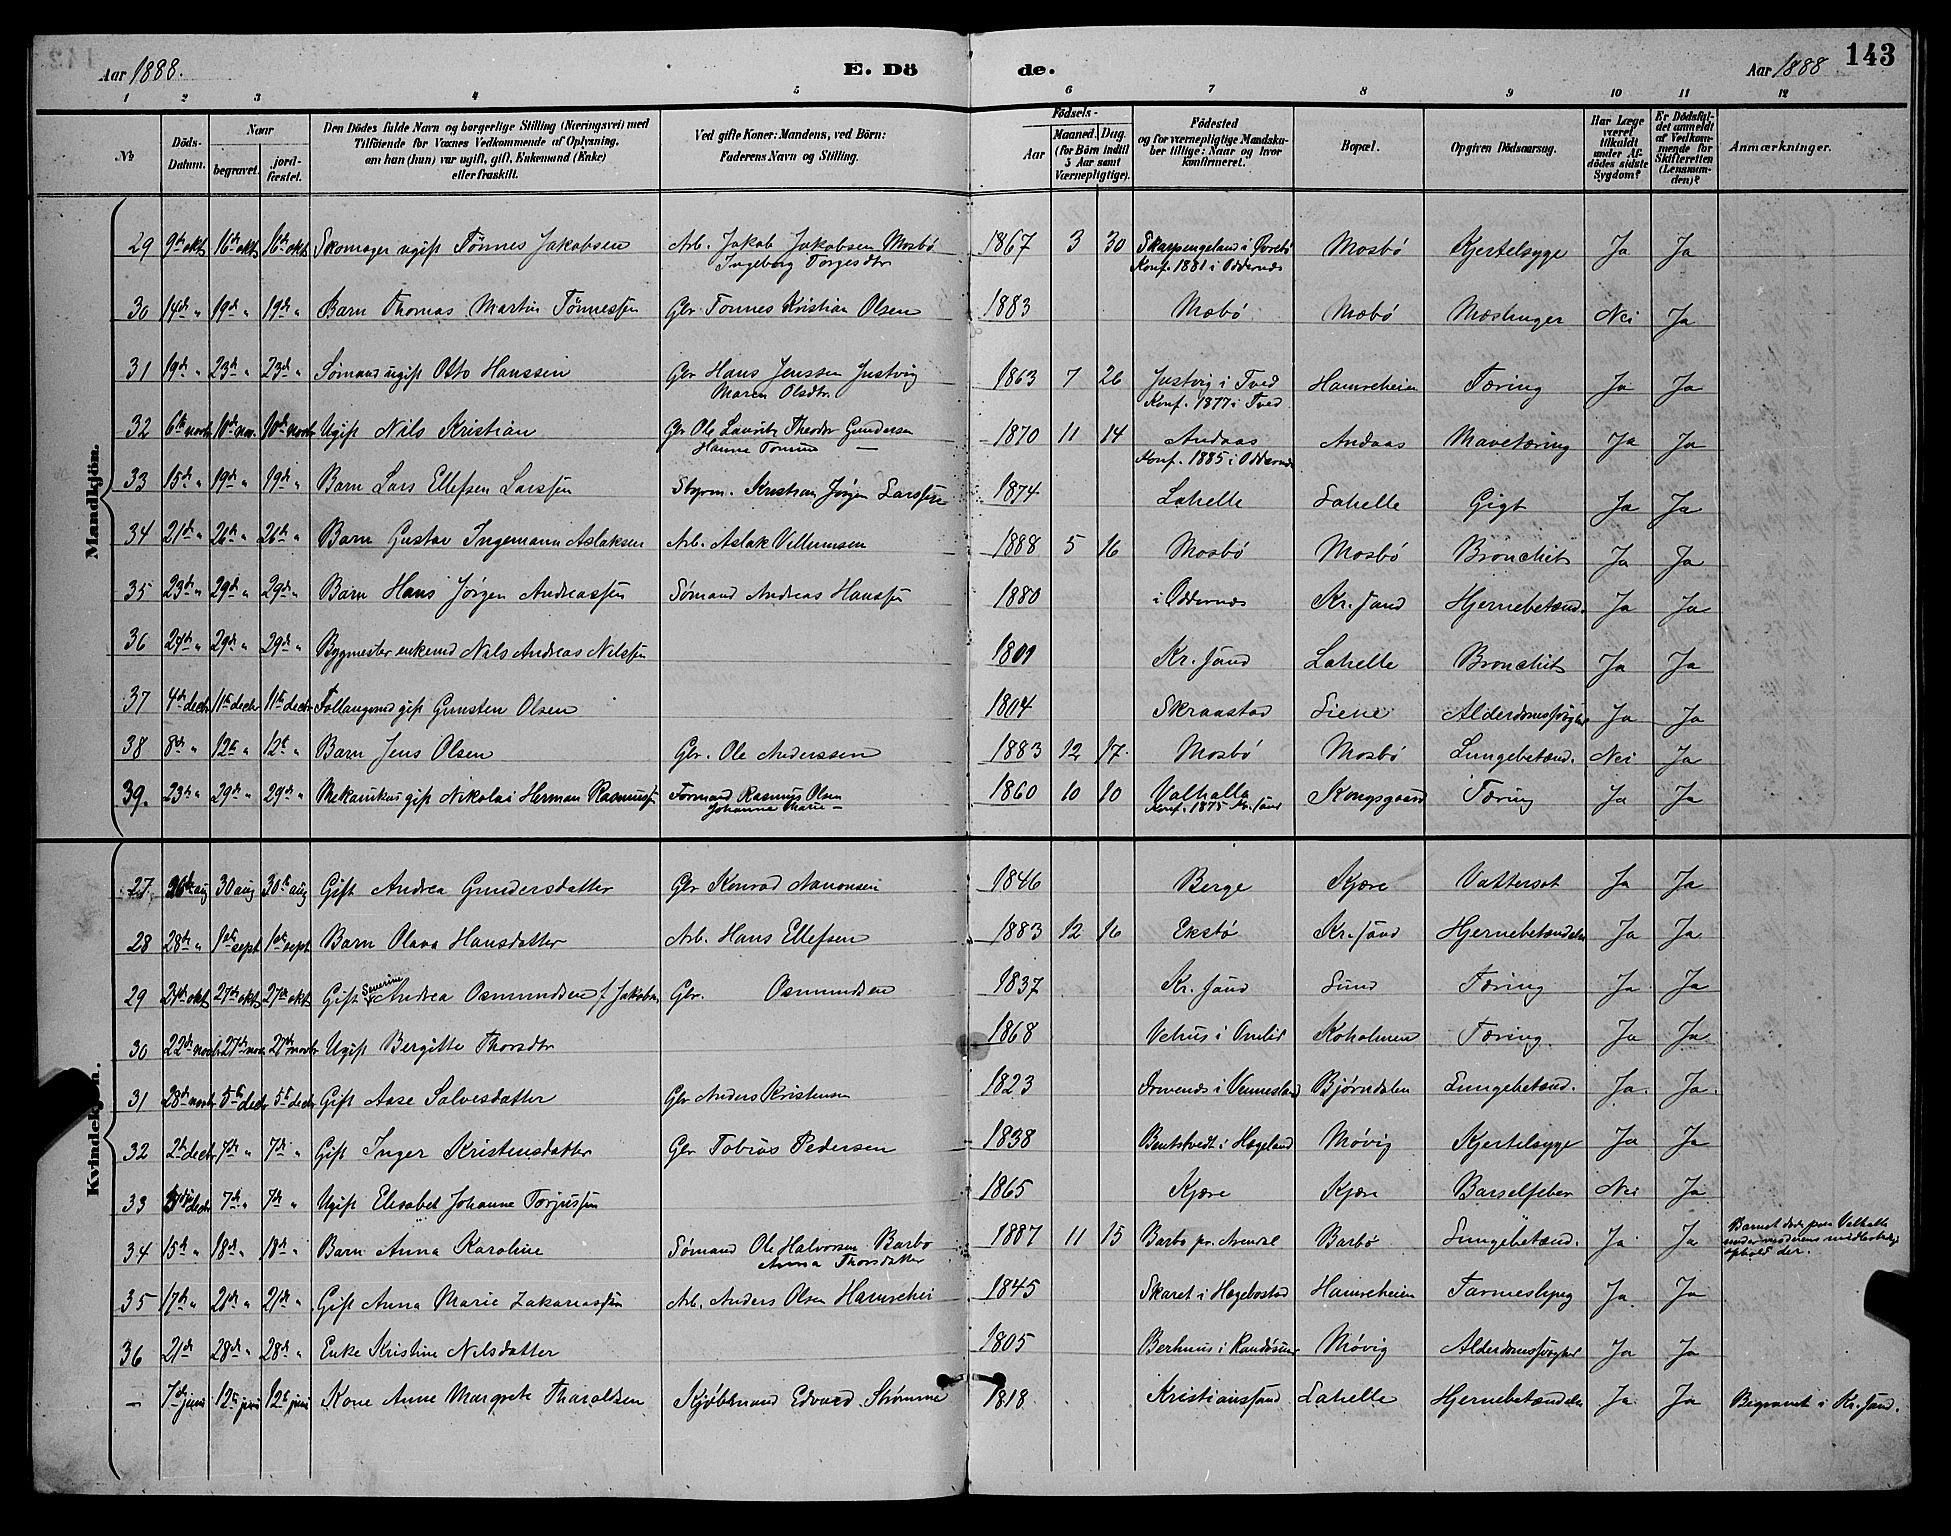 Aar 1888. E. Dö de. Aar 1888 143
1 2 3 4 5 6 7 8 9 10 11 12
No
Döds-Datum.
Naar
begravet.
jord-fæstet.
Den Dödes fulde Navn og borgerlige Stilling (Næringsvei) med
Tilföiende for Voxnes Vedkommende af Oplysning,
om han (hun) var ugift, gift, Enkemand (Enke)
eller fraskilt.
Ved gifte Koner: Mandens, ved Börn:
Faderens Navn og Stilling.
Födsels-
Aar
Maaned. Dag.
(for Börn indtil
5 Aar samt
Værnepligtige).
Födested
og for værnepligtige Mandska-
ber tillige: Naar og hvor
konfirmeret.
Bopæl.
Opgiven Dödsaarsag.
Har Læge
været
tilkaldt
under Af-
dödes sidste
Sygdom?
Er Dödsfal-
det anmeldt
af Vedkom-
mende for
Skifteretten
(Lensman-
den)?
Anmærkninger.
Mandkjön.
29 9de okt 16de okt 16de okt Skomager ugift Tønnes Jakobsen Arb. Jakob Jakobsen Mosbø 1867 3 30 Skarpengeland i Øvrebø Mosbø Kjertelsyge Ja Ja
Ingeborg Torgesdtr Konf. 1881 i Oddernes
30 14de " 19de " 19de " Barn Thomas Martin Tønnessen Gbr. Tønnes Kristian Olsen 1883 Mæbø Mæbø Mæslinger Nei Ja
31 19de " 23de " 23de " Sømand ugift Otto Hanssen Gbr Hans Jenssen Justvig 1863 7 26 Justvig i Tved Hamreheien Tæring Ja Ja
Maren Olsdtr Konf. 1877 i Tved
32 6te novbr 10de nov. 10de novbr Ugift Nils Kristian Gbr Ole Lauritz Theodor Gundersen 1870 11 14 Andaas Andaas Mavetæring Ja Ja
Hanne — Konf. 1885 i Oddernes
33 15de " 19de " 19de " Barn Lars Ellefsen Larssen Styrm. Kristian Jørgen Larssen 1874 Lahelle Lahelle Gigt Ja Ja
34 21de " 26de " 26de " Barn Gustav Ingemann Aslaksen Arb. Aslak Villumsen 1888 5 16 Mosbø Mosbø Bronchit Ja Ja
35 23de " 29de " 29de " Barn Hans Jørgen Andreassen Sømand Andreas Hanssen 1880 i Oddernes Kr.sand Hjernebetænd. Ja Ja
36 24de " 29de " 29de " Bygmester enkemd Nils Andreas Nilssen 1801 Kr.sand Lahelle Bronchit Ja Ja
37 4de decbr 11te decbr 11te decbr Follaugsmd gift Gunsten Olsen 1804 Skraastad Liene Alderdomssvaghed Ja Ja
38 8de " 12te " 12te " Barn Jens Olsen Gbr. Ole Anderssen 1883 12 17. Mosbø Mosbø Lungebetænd. Nei Ja
39. 23de " 29de " 29de " Mekanikus gift Nikolai Herman Rasmussen Formand Rasmus Olsen 1860 10 10 Valhalla Kongsgaard Tæring Ja Ja
Johanne Marie — Konf. 1875 Kr.sand
Kvindekjön.
27. aug 30 aug 30te aug Gift Andrea Gundersdatter Gbr Konrad Aanonsen 1846 Berge Kjære Vattersot Ja Ja
28 28de " 1ste sept 1ste sept Barn Olava Hansdatter Arb. Hans Ellefsen 1883 12 16 Ekstø Kr.sand Hjernebetændelse Ja Ja
29 21de okt 27de okt 27de okt Gift Severine Andrea Osmundsen f. Jakobsen Gbr. Osmundsen 1837 Kr.sand Lund Tæring Ja Ja
30 22de novbr 27de nov 27de novbr Ugift Bergitte Thorsdtr 1868 Vehus i Omlid Koholmen Tæring. Ja Ja
31 28de novbr 5te decbr 5te decbr Gift Aase Salvesdatter Gbr Anders Kristensen 1823 Drivenes i Vennesland Bjørndalen Lungebetænd. Ja. Ja.
32 2de decbr 7de " 7de " Gift Inger Kristensdatter Gbr Tobias Pedersen 1838 Bentstvedt i Hægeland Møvig Kjertelsyge Ja Ja
33 decbr 7de " 7de " Ugift Elisabet Johanne Torjussen 1865 Kjære Kjære Barselfeber Nei Ja
34 15de " 18de " 18de " Barn Anna Karoline Sømand Ole Halvorsen Barbo 1887 11 15 Barbo pr. Arendal Barbo Lungebetænd. Ja Ja Barnet døde paa Valhalla
Anna Thorsdatter under moderens midlertidige
ophold der.
35 17de " 21de " 21de " Gift Anna Marie Zakariassen Arb. Anders Olsen Hamrehei 1845 Skaret i Hægebostad Hamreheien Tarmeslyng Ja Ja
36 21de 28de " 28de " Enke Kristine Nilsdatter 1805 Berhuus i Randøsund Møvig Alderdomssvaghed Ja Ja
— 7de juni 12te juni 12te juni Kone Anne Margrete Tharaldsen Kjøbmand Edvard Strømme 1818 Kristianssand Lahelle Hjernebetændelse Ja Ja Begravet i Kr.sand.